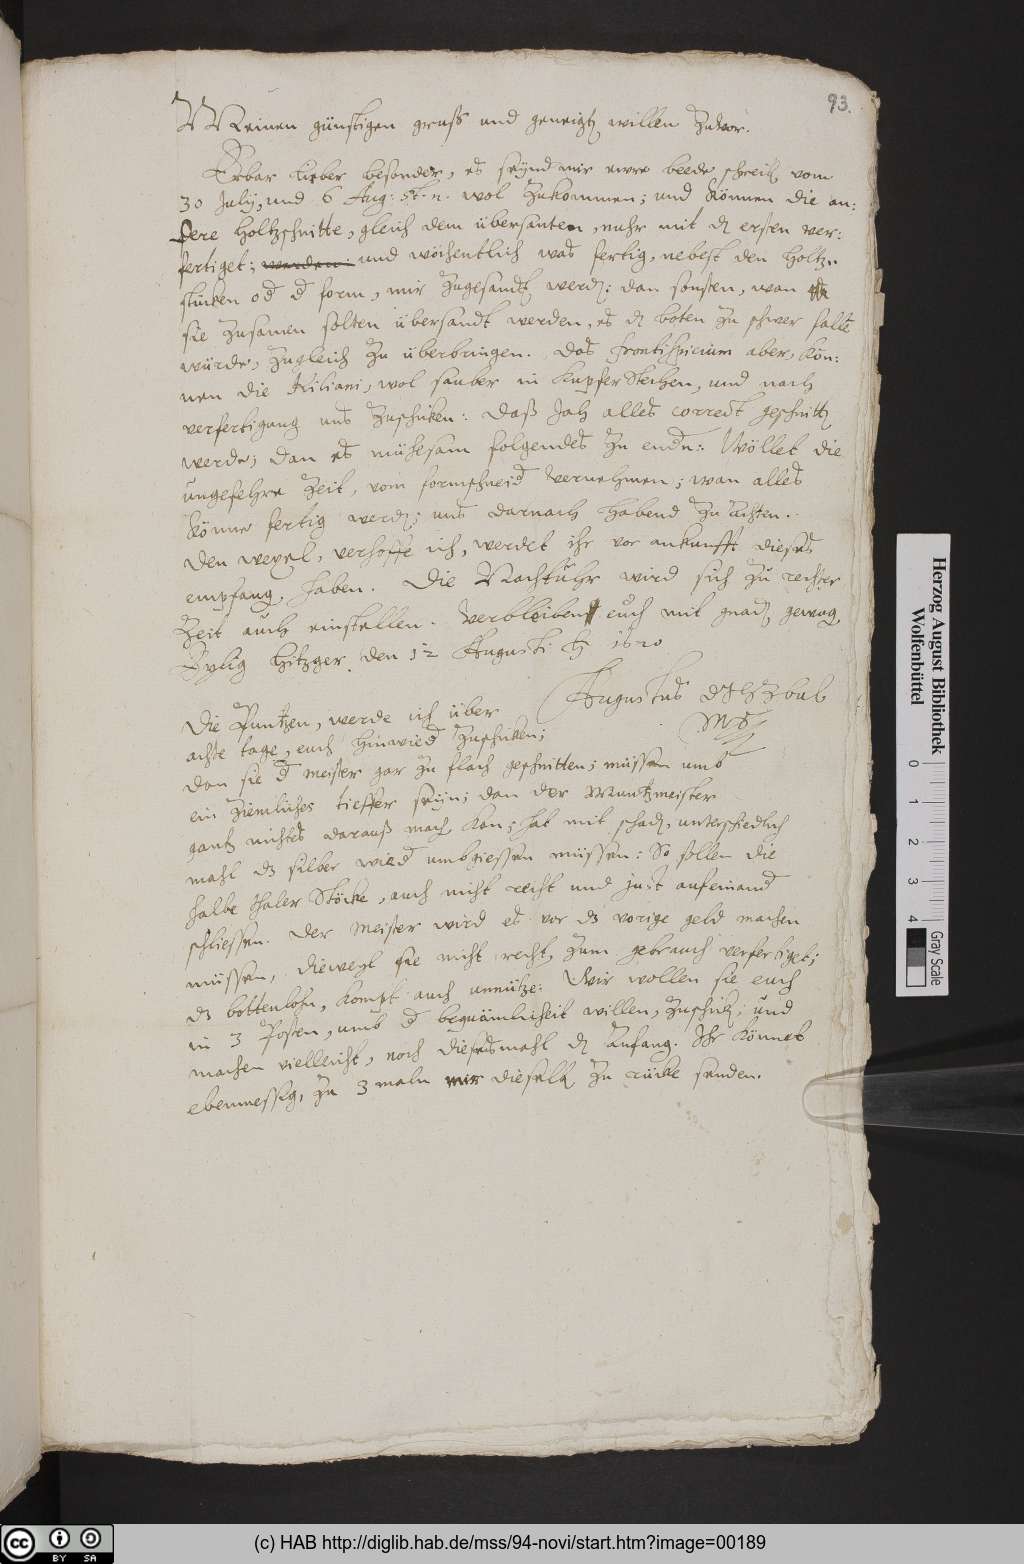 93.
Meinen günstigen gruß und geneigtẽ willen zuvor.
Erbar lieber besonder, es seynd mir ewre beede schreib. vom
30 July, und 6 Aug: st. n. wol zukommen; und können die an:
dere holtzschnitte, gleich dem übersanten, nuhr mit dẽ ersten ver:
fertiget; werden: und wöchentlich was fertig, nebest den holtz-
stücken od. d. form, mir zugesandt werdẽ: dan sonsten, wan
sie zusamen solten übersandt werden, es dẽ boten zu schwer falle
würde, zugleich zu überbringen. Das frontispicium aber, kön:
nen die Kiliani, wol sauber in kupfer stechen, und nach
verfertigung uns zuschicken: daß Jah alles correct geschnittẽ
werde; dan es mühesam folgendes zu endn: Wöllet die
ungefehre zeit, vom formschneid. vernehmen; wan alles
könne fertig werdẽ; uns darnach habend zu achten.
den wexel, verhoffe ich, werdet ihr vor ankunfft dieses
empfang. haben. Die Nachtuhr wird sich zu rechter
zeit auch einstellen. Verbleiben euch mit gnadẽ gewog.
Eylig Hitzger. den 12 Augusti 1620
Augustus DJHZBuL
Mp
Die Puntzen, werde ich über
achte tage, euch hinwied. zuschicken;
dan sie d. meister gar zu flach geschnitten; müssen umb
ein ziemliches tieffer seyn; dan der Muntzmeister
gantz nichtes darauß mach. kan; hat mit schadẽ, unterschiedlich
mahl dz silber wied. umbgiessen müssen: So sollen die
halbe thaler stöcke, auch nicht recht und just aufeinand.
schliessen. der meister wird es vor dz vorige geld machen
müssen, dieweyl sie nicht recht, zum gebrauch verfertiget;
dz bottenlohn, kompt auch unnütze: Wir wollen sie euch
in 3 Posten, umb d. bequämlicheit willen, zuschickẽ; und
machen vielleicht, noch diesesmahl dẽ Anfang. Ihr könnet
ebenmessig, zu 3 maln mir dieselbẽ zu rücke senden.
Herzog August Bibliothek
Wolfenbüttel
0 1 2 3 4
Gray Scale
cc BY SA
(c) HAB http://diglib.hab.de/mss/94-novi/start.htm?image=00189